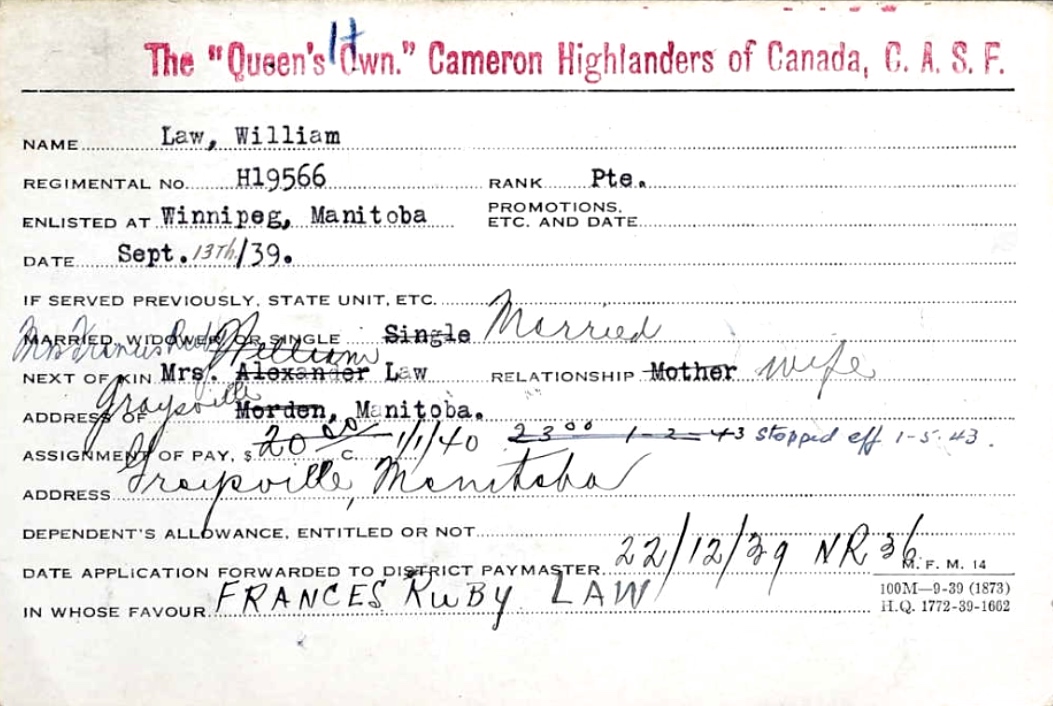 The "Queen's Own." Cameron Highlanders of Canada, C. A. S. F.
NAME Law, William
REGIMENTAL NO. H19566 RANK Pte.
ENLISTED AT Winnipeg, Manitoba PROMOTIONS, ETC. AND DATE
DATE Sept. 13th/39.
IF SERVED PREVIOUSLY, STATE UNIT, ETC.
MARRIED, WIDOWER OR SINGLE Single Married
Mrs Frances Ruby William
NEXT OF KIN Mrs. Alexander Law RELATIONSHIP Mother wife
Graysville
ADDRESS OF Morden, Manitoba.
ASSIGNMENT OF PAY, $ 20 00 C. 1/1/40 23 00 1-2-43 stopped eff 1-5.43.
ADDRESS Graysville, Manitoba
DEPENDENT'S ALLOWANCE, ENTITLED OR NOT
DATE APPLICATION FORWARDED TO DISTRICT PAYMASTER 22/12/39 NR 36
M. F. M. 14
IN WHOSE FAVOUR FRANCES RUBY LAW
100M—9-39 (1873)
H.Q. 1772-39-1662